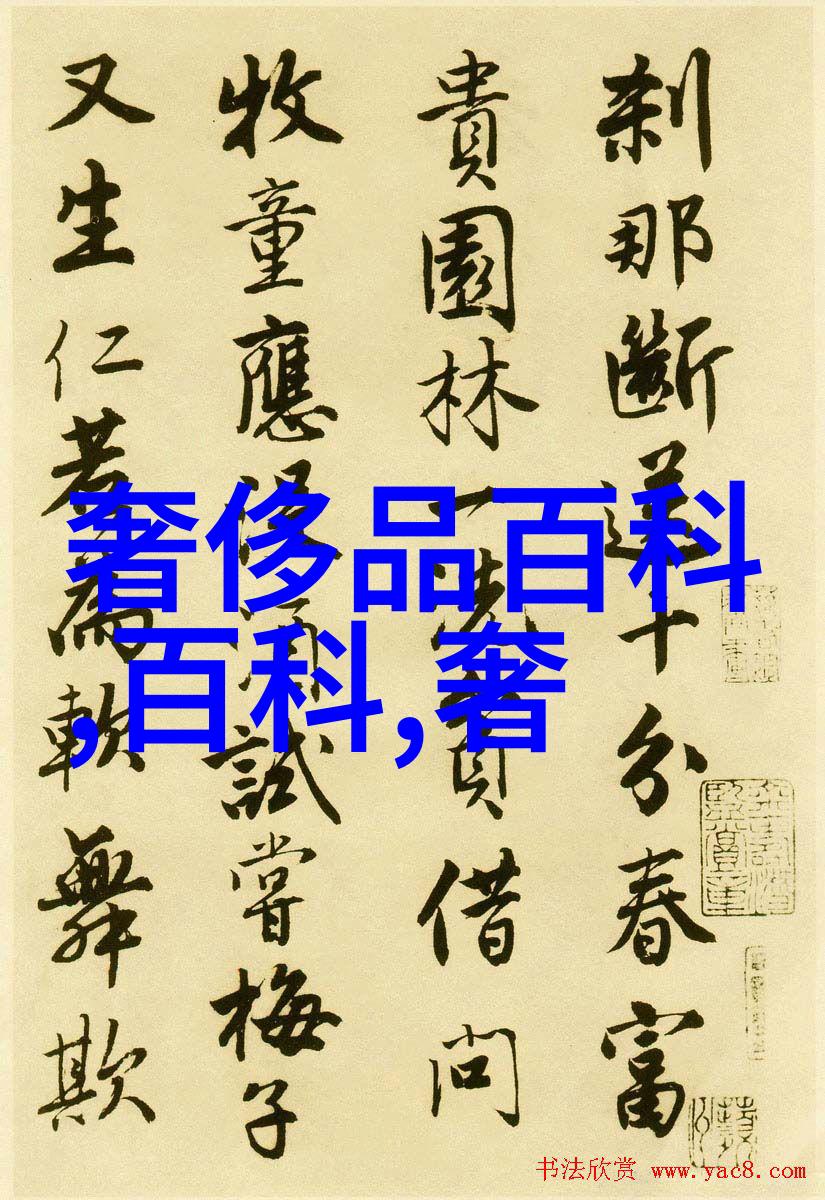 刹那斷送十分春富
貴園林一洗貧借問
牧童應沒酒試嘗梅子
又生仁若為軟舞欺
奢侈品百科
,百科,奢
书法欣赏 www.yac8.com